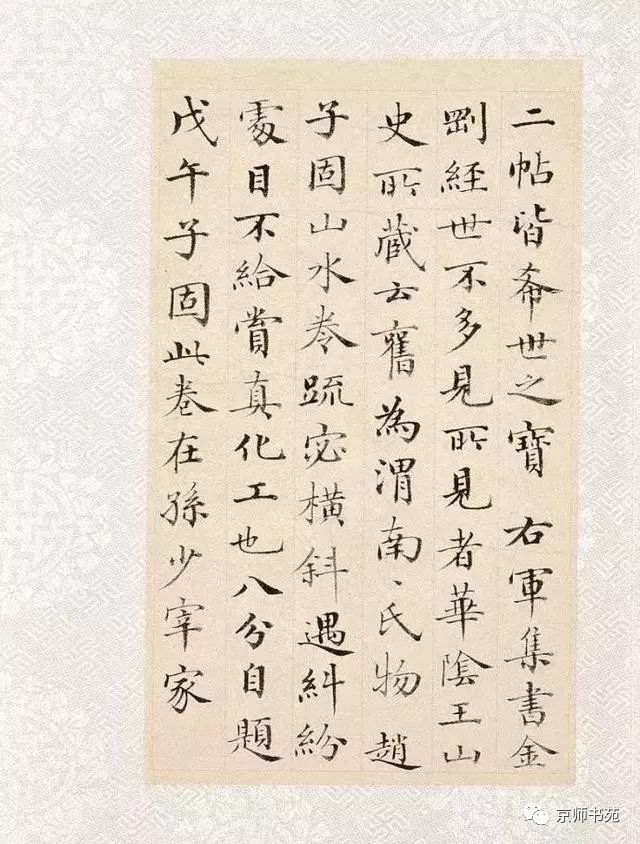 二帖皆希世之寶右軍集書金
剛経世不多見所見者華陰王山
史所蔵云舊為渭南、氏物趙
子固山水卷疏宓橫斜遇糾紛
處目不給賞真化工也八分自題
戊午子固此卷在孫少宰家
京师书苑